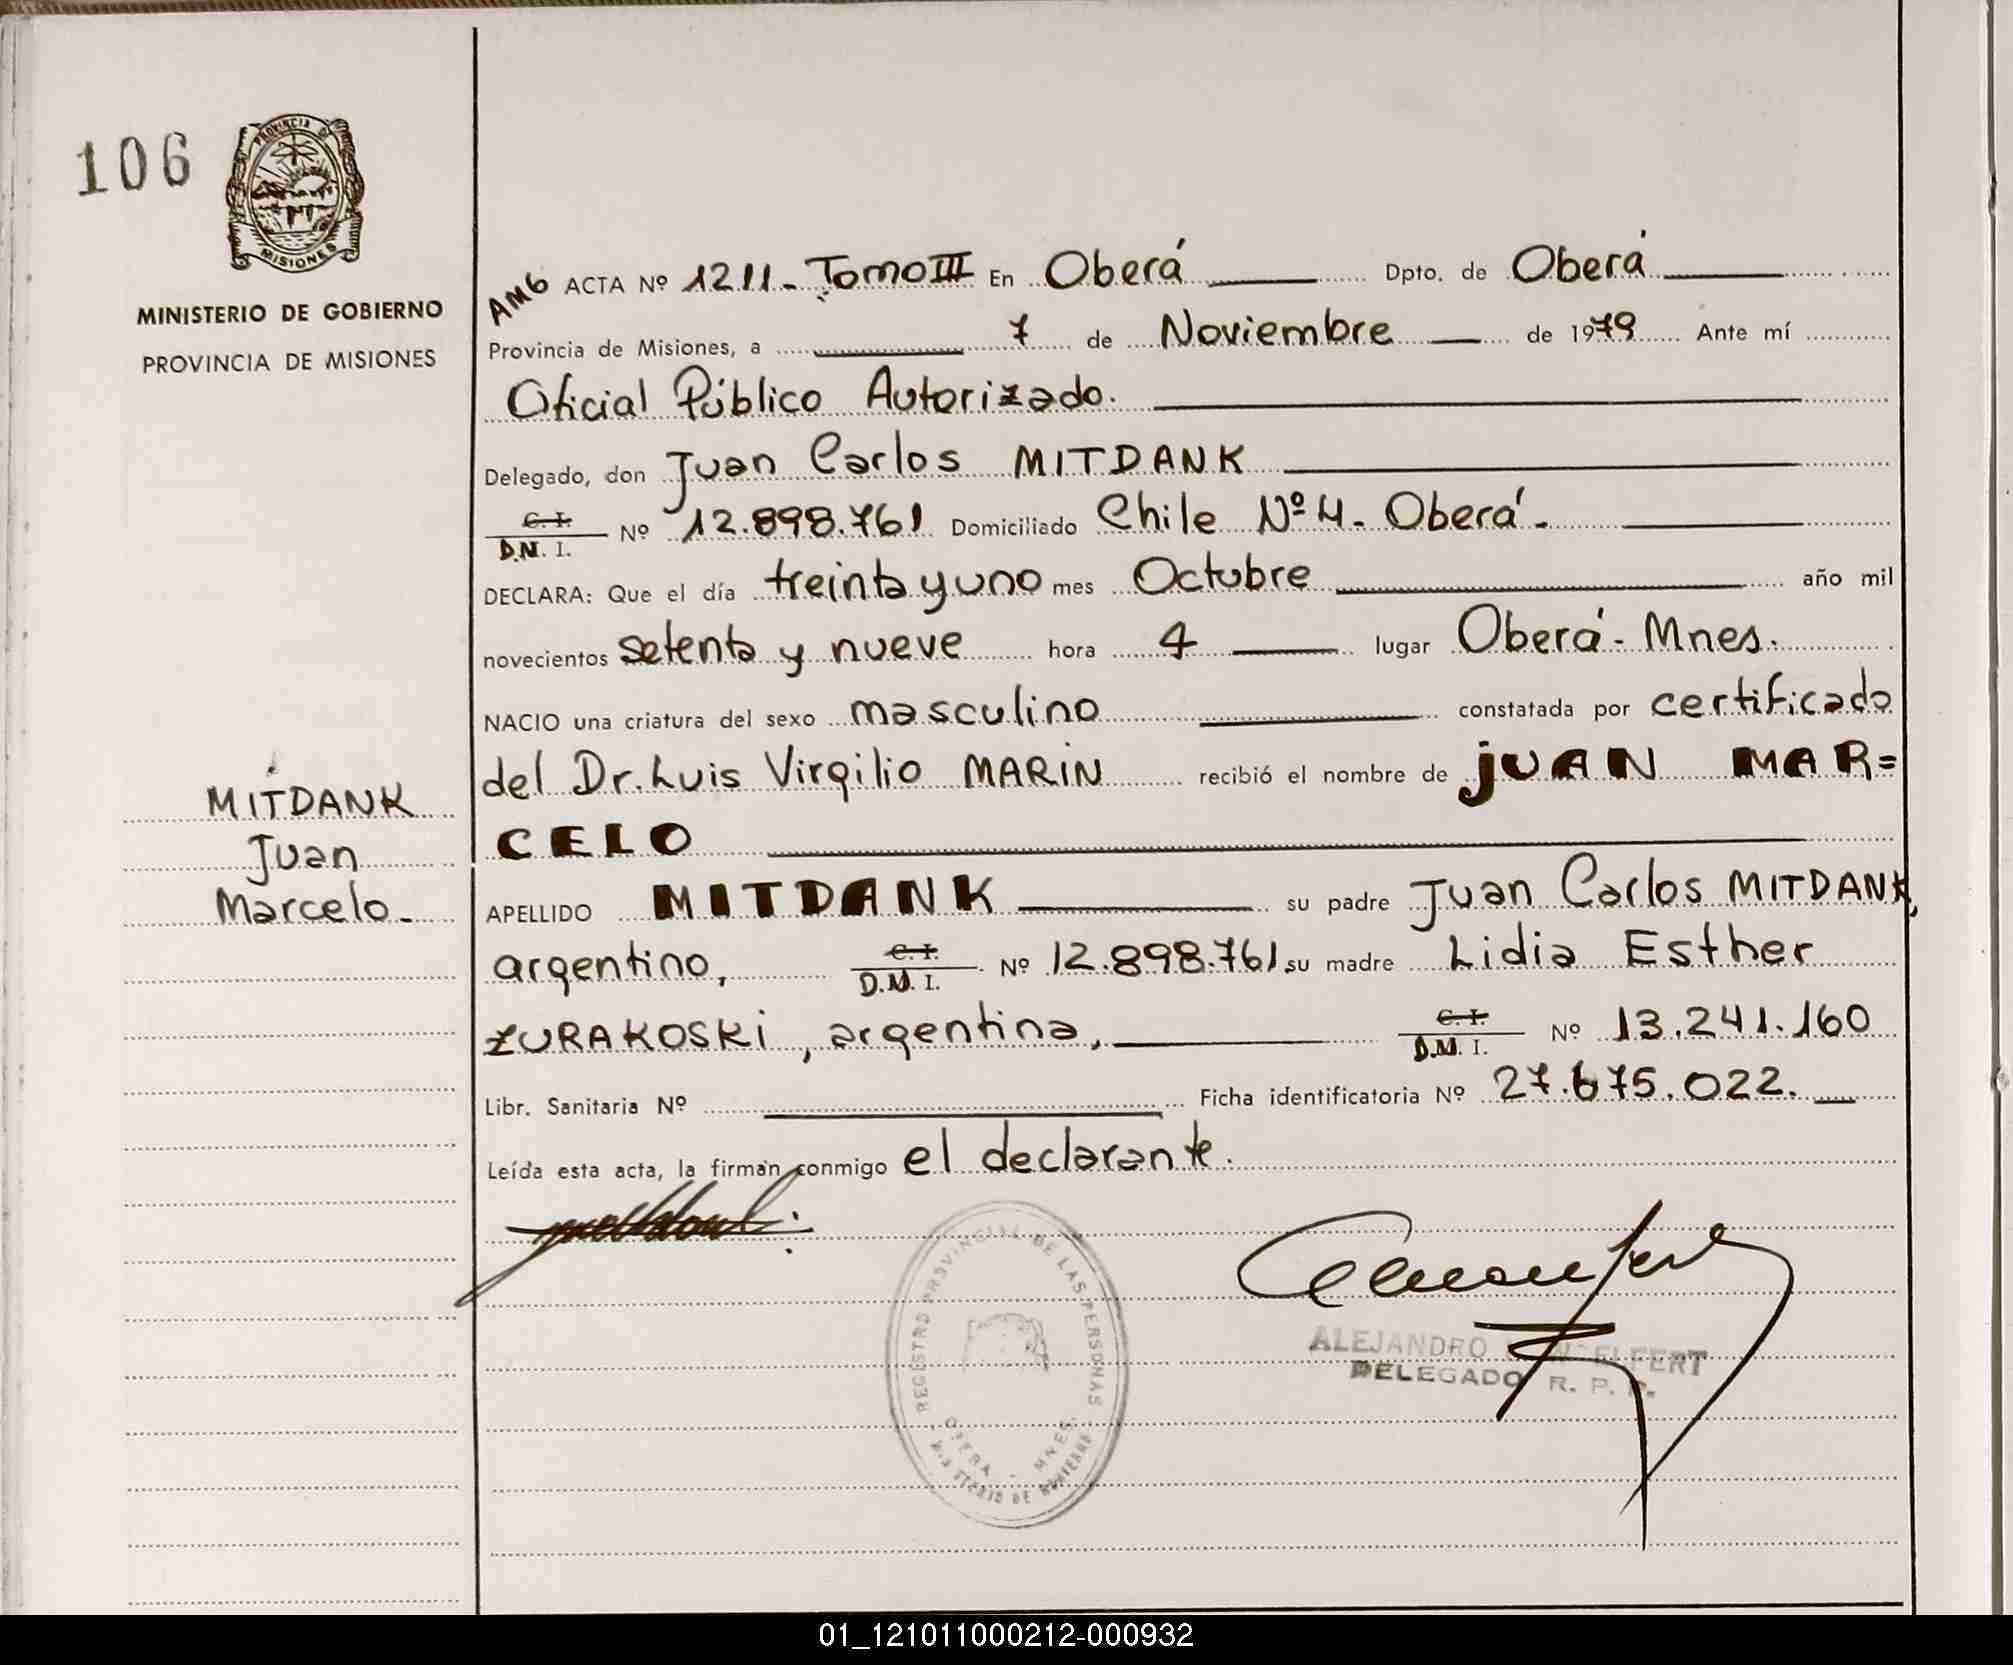 106
PROVINCIA D
MISIONES
MINISTERIO DE GOBIERNO
PROVINCIA DE MISIONES
AM6 ACTA Nº 1211- Tomo III En Oberá Dpto. de Oberá
Provincia de Misiones, a 7 de Noviembre de 1979 Ante mí
Oficial Público Autorizado.
Delegado, don Juan Carlos MITDANK
C. I. D.N. I. Nº 12.898.761 Domiciliado Chile Nº 4- Oberá-
DECLARA: Que el día treinta y uno mes Octubre año mil
novecientos setenta y nueve hora 4 lugar Oberá- Mnes.
NACIO una criatura del sexo masculino constatada por certificado
del Dr. Luis Virgilio MARIN recibió el nombre de JUAN MAR=
CELO
MITDANK
Juan
Marcelo-
APELLIDO MITDANK su padre Juan Carlos MITDANK,
argentino, C. I. D.N. I. Nº 12.898.761 su madre Lidia Esther
ZURAKOSKI, argentina, C. I. D.N. I. Nº 13.241.160
Libr. Sanitaria Nº Ficha identificatoria Nº 27.675.022.
Leída esta acta, la firman conmigo el declarante.
REGISTRO PROVINCIAL DE LAS PERSONAS
OBERA - MNES.
ALEJANDRO
DELEGADO R. P. P.
01_121011000212-000932